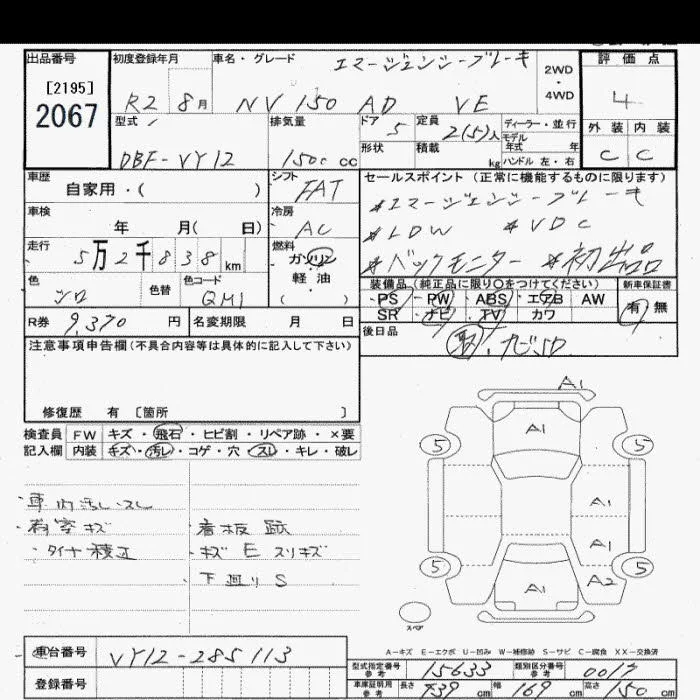 出品番号 初度登録年月 車名・グレード エマージェンシーブレーキ 2WD・4WD 評価点
[2195]
2067 R2 8月 NV 150 AD VE 4
型式 排気量 ドア 5 定員 2(5)人 ディーラー・並行 外装 内装
モデル年式 年
DBF-VY12 1500 cc 形状 積載 kg ハンドル 左・右 C C
車歴 シフト セールスポイント(正常に機能するものに限ります)
自家用・( ) FAT *エマージェンシーブレーキ
車検 冷房 *LDW *VDC
年 月( 日) AC *バックモニター *初出品
走行 燃料
5万2千838km ガソリン
色 色替 色コード 軽油 装備品(純正品に限り○をつけてください) 新車保証書
シロ QM1 ( ) PS・PW・ABS・エアB AW 有・無
SR ナビ TV カワ
R券 9,370 円 名変期限 月 日 後日品
注意事項申告欄(不具合内容等は具体的に記入して下さい) 取.ナビSD
修復歴 有 〔箇所 〕
検査員 FW キズ・飛石・ヒビ割・リペア跡・×要
記入欄 内装 キズ・汚レ・コゲ・穴・スレ・キレ・破レ
A1
A1
5 5
・車内汚レ・スレ
・荷室キズ ・看板跡 A1
・タイヤ積込 ・キズEスリキズ A1
・下廻りS 5 5
A1 A2
スペア
A-キズ E-エクボ U-凹み W-補修跡 S-サビ C-腐食 XX-交換済
車台番号 VY12-285113
型式指定番号 参考 15633 類別区分番号 参考 0017
登録番号 車庫証明用 参考 長さ 439cm 幅 169cm 高さ 150cm